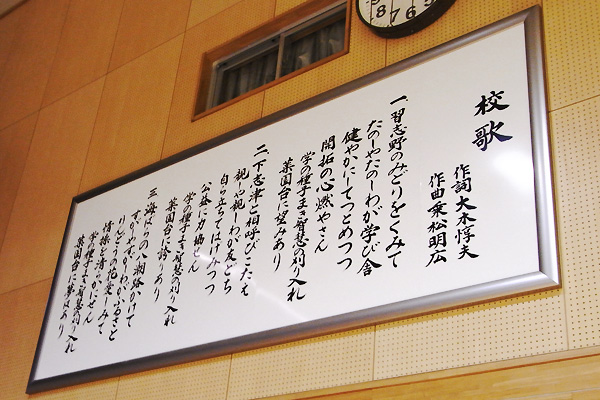 校歌
作詞 大木惇夫
作曲 乗松明広
一、習志野のみどりをくみて
たのしやたのしわが学び舎
健やかにてつとめつつ
開拓の心燃やさん
学の種子まき智慧の刈り入れ
薬園台に望みあり
二、下志津と相呼びこたえ
親しや親しわが友どち
自ら立ちてはげみつつ
公益に力協せん
学の種子まき智慧の刈り入れ
薬園台に誇りあり
三、海はりの八潮路かけて
すがやすがしわがふるさと
りんどうの花愛しみて
情操を清らかにせん
学の種子まき智慧の刈り入れ
薬園台に夢はあり
9
8
7
6
5